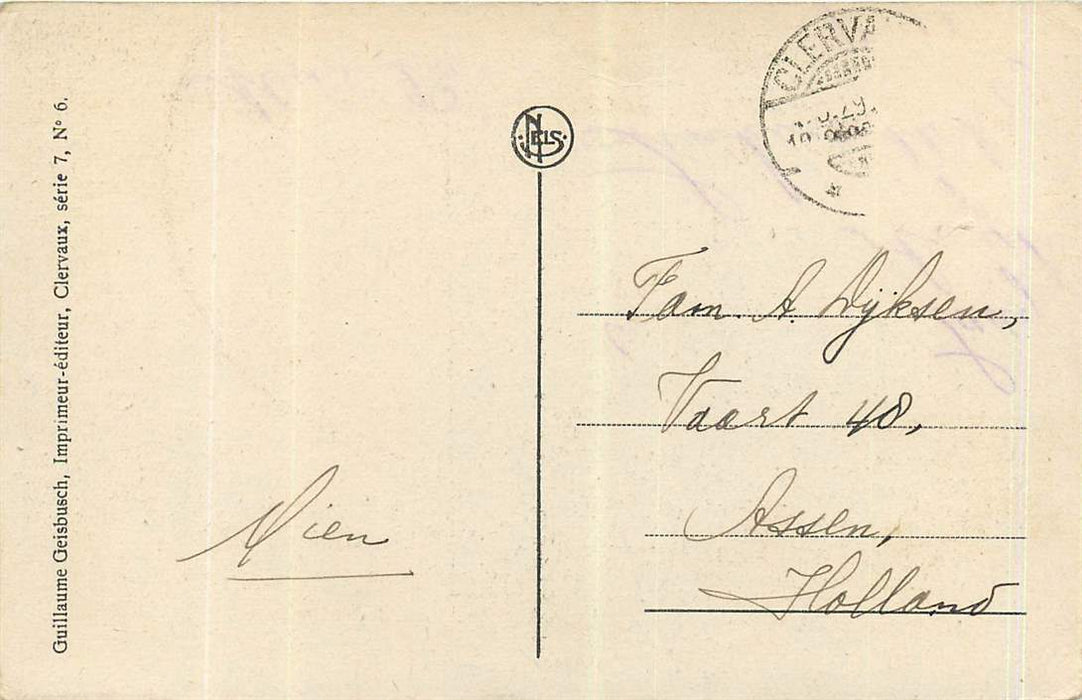 Guillaume Geisbusch, Imprimeur-éditeur, Clervaux, série 7, N° 6.
NELS
CLERVA
Fam. A. Dijksen,
Vaart 48,
Assen,
Holland
Mien